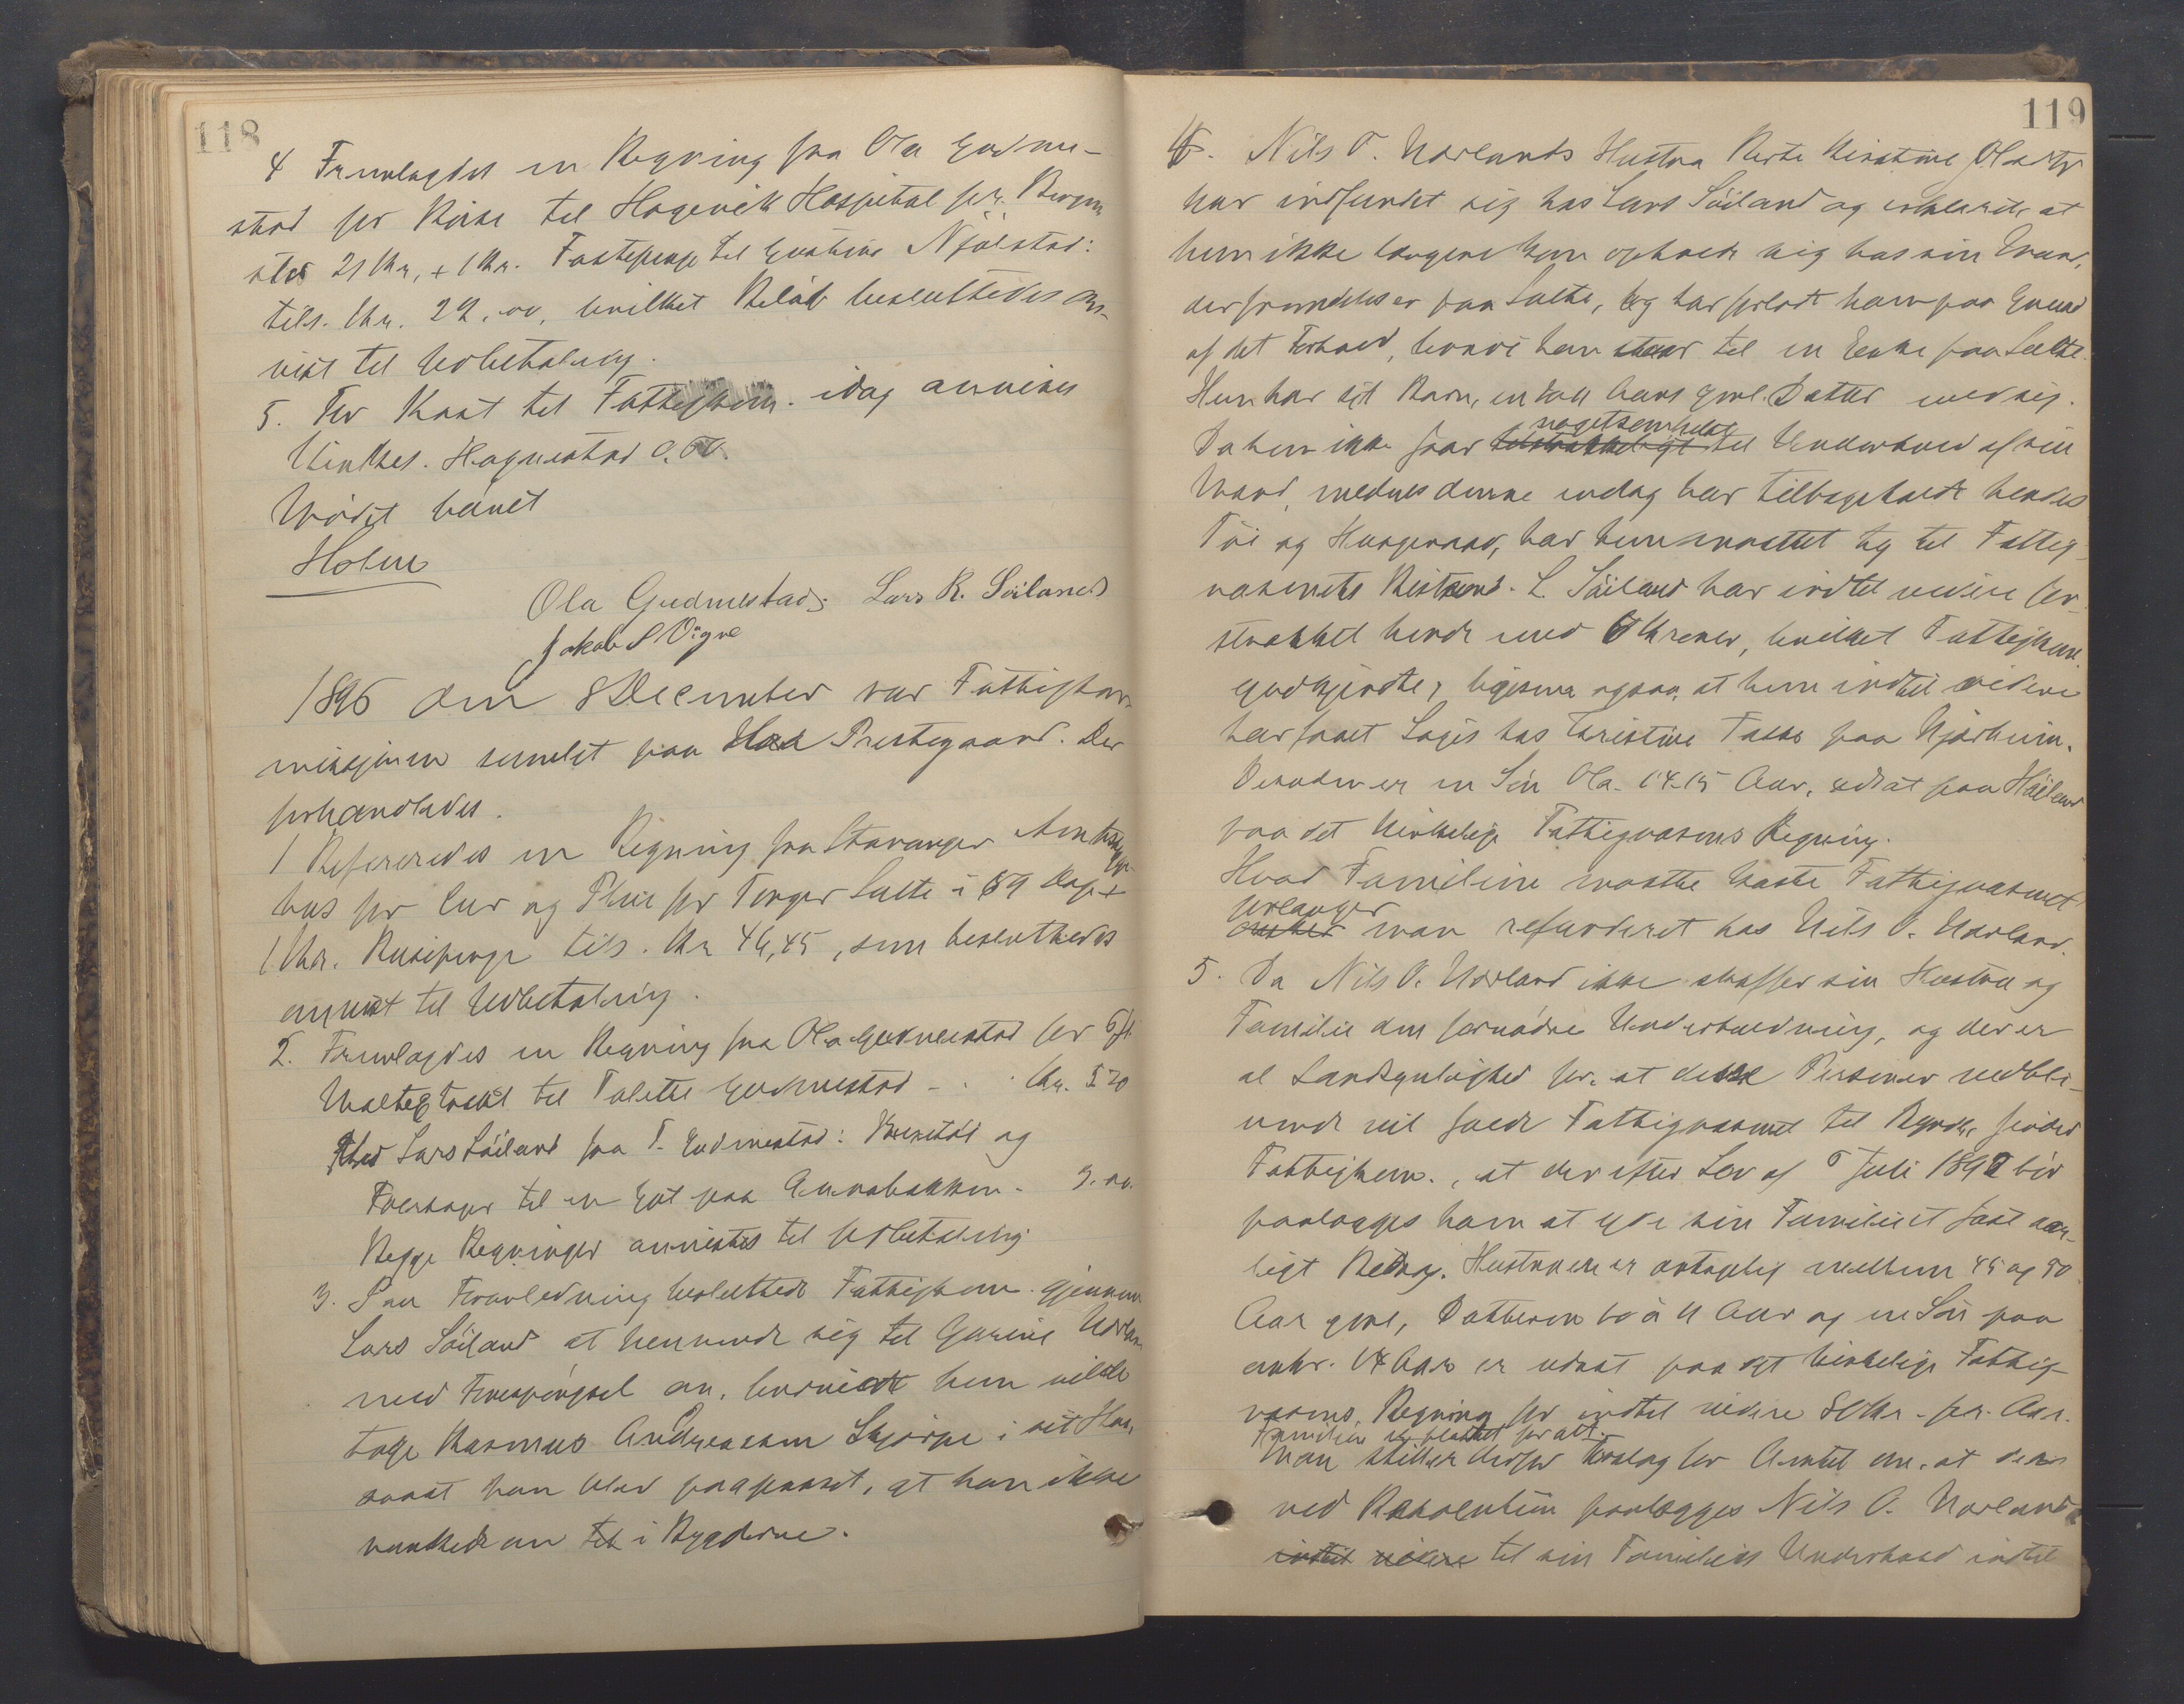 118
4 Fremlagdes en Regning fra Ola Gudme-
stad for Reise til Hagevik Hospital pr. Bergen
stor 21 Kr. + 1 Kr. Fæstepenge til Njølstad:
tils. Kr. 22,00, hvilket Beløb besluttedes an-
vist til Udbetaling.
5. For Kost til Fattigkom. idag anvises
Kirkes. Hognestad
Mødet hævet
Holm
Ola Gudmestad. Lars R. Söiland
Jakob S Vigre
1896 den 8 December var Fattigkom-
missionen samlet paa Haa Prestegaard. Der
forhandledes.
1 Refereredes en Regning fra Stavanger Amtssyge-
hus for Cur og Pleie for Torger Salte i 59 Dage +
1 Kr. Reisepenge tils. Kr 46,45, som besluttedes
anvist til Udbetaling.
2. Fremlagdes en Regning fra Ola Gudmestad for
til Talette Gudmestad - . . Kr.
Lars Söiland fra T. Gudmestad: og
til en Gut paa Annabakken. 3.00.
Begge Regninger anvistes til Udbetaling
3. Paa Foranledning besluttede Fattigkom. gjennem
Lars Söiland at henvende sig til Gurine
med Forespørgsel om, hvorvidt hun vilde
tage Rasmus Andreassen Skjörpe i sit Hus,
saaat han blev paapasset, at han ikke
vankede om i Bygderne.
119
4. Nils O. Norlands Hustru Berte Kirstine Olsdtr
har indfundet sig hos Lars Söiland og erklærede at
hun ikke længere kan opholde sig hos sin Mand,
der fremdeles er paa Salte, og har forladt ham paa Grund
af det Forhold, hvori han staar til en Enke paa Salte.
Hun har sit Barn, en 10 à 11 Aars gml. Datter med sig.
nogetsomhelst
Da hun ikke faar tilstrækkeligt til Underhold af sin
Mand, medens denne endog har tilbageholdt hendes
Töi og Husgeraad, har hun maattet ty til Fattig-
væsenets Bistand. L. Söiland har indtil videre for-
strakket hende med 6 Kroner, hvilket Fattigkom.
godkjendte, ligesom ogsaa, at hun indtil videre
har faaet Logis hos Christine Tasse paa Njærheim.
Desuden er en Sön Ola 14-15 Aar, udsat paa Höiland
paa det kirkelige Fattigvæsens Regning.
Hvad Familien maatte koste Fattigvæsenet
forlanger
ønsker man refunderet hos Nils O. Norland.
5. Da Nils O. Norland ikke skaffer sin Hustru og
Familie den fornødne Underholdning, og der er
al Sandsynlighed for, at disse Personer vedbli-
vende vil falde Fattigvæsenet til Byrde, finder
Fattigkom., at der efter Lov af 6 Juli 1892 bør
paalægges ham at yde sin Familie et fast aar-
ligt Bidrag. Hustruen er antagelig mellem 45 og 50
Aar gml, Datteren 10 à 11 Aar og en Sön paa
omkr. 14 Aar er udsat paa det kirkelige Fattig-
væsens Regning for indtil videre 80 Kr. pr. Aar.
Familien er blottet for alt.
Man stiller derfor Forslag for Amtet om, at der
ved Resolution paalægges Nils O. Norland
indtil videre til sin Families Underhold indtil